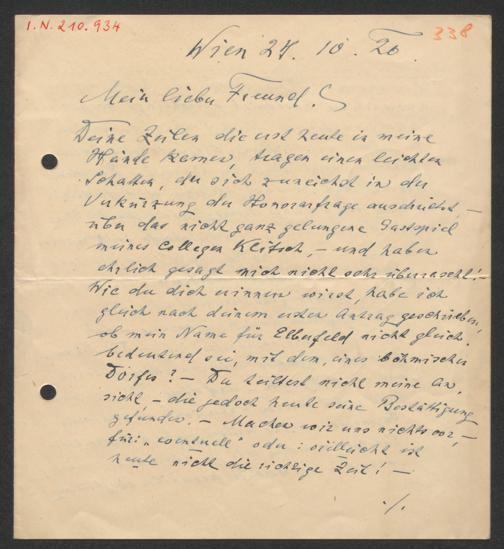 I.N. 210.934
338
Wien 27. 10. 26.
Mein lieber Freund!
Deine Zeilen die erst heute in meine
Hände kamen, tragen einen leichten
Schatten, der sich zunächst in der
Verkürzung der Honorarfrage ausdrückt, –
über das nicht ganz gelungene Gastspiel
meines Collegen Klitsch, – und haben
ehrlich gesagt mich nicht sehr überrascht! –
Wie du dich erinnern wirst, habe ich
gleich nach deinem ersten Antrag geschrieben,
ob mein Name für Elberfeld nicht gleich
bedeutend sei, mit dem, eines böhmischen
Dorfes? – Du teiltest nicht meine An,
sicht – die jedoch heute seine Bestättigung
gefunden. – Machen wir uns nichts vor, –
für: „eventuell" oder: vielleicht ist
heute nicht die richtige Zeit! –
./.